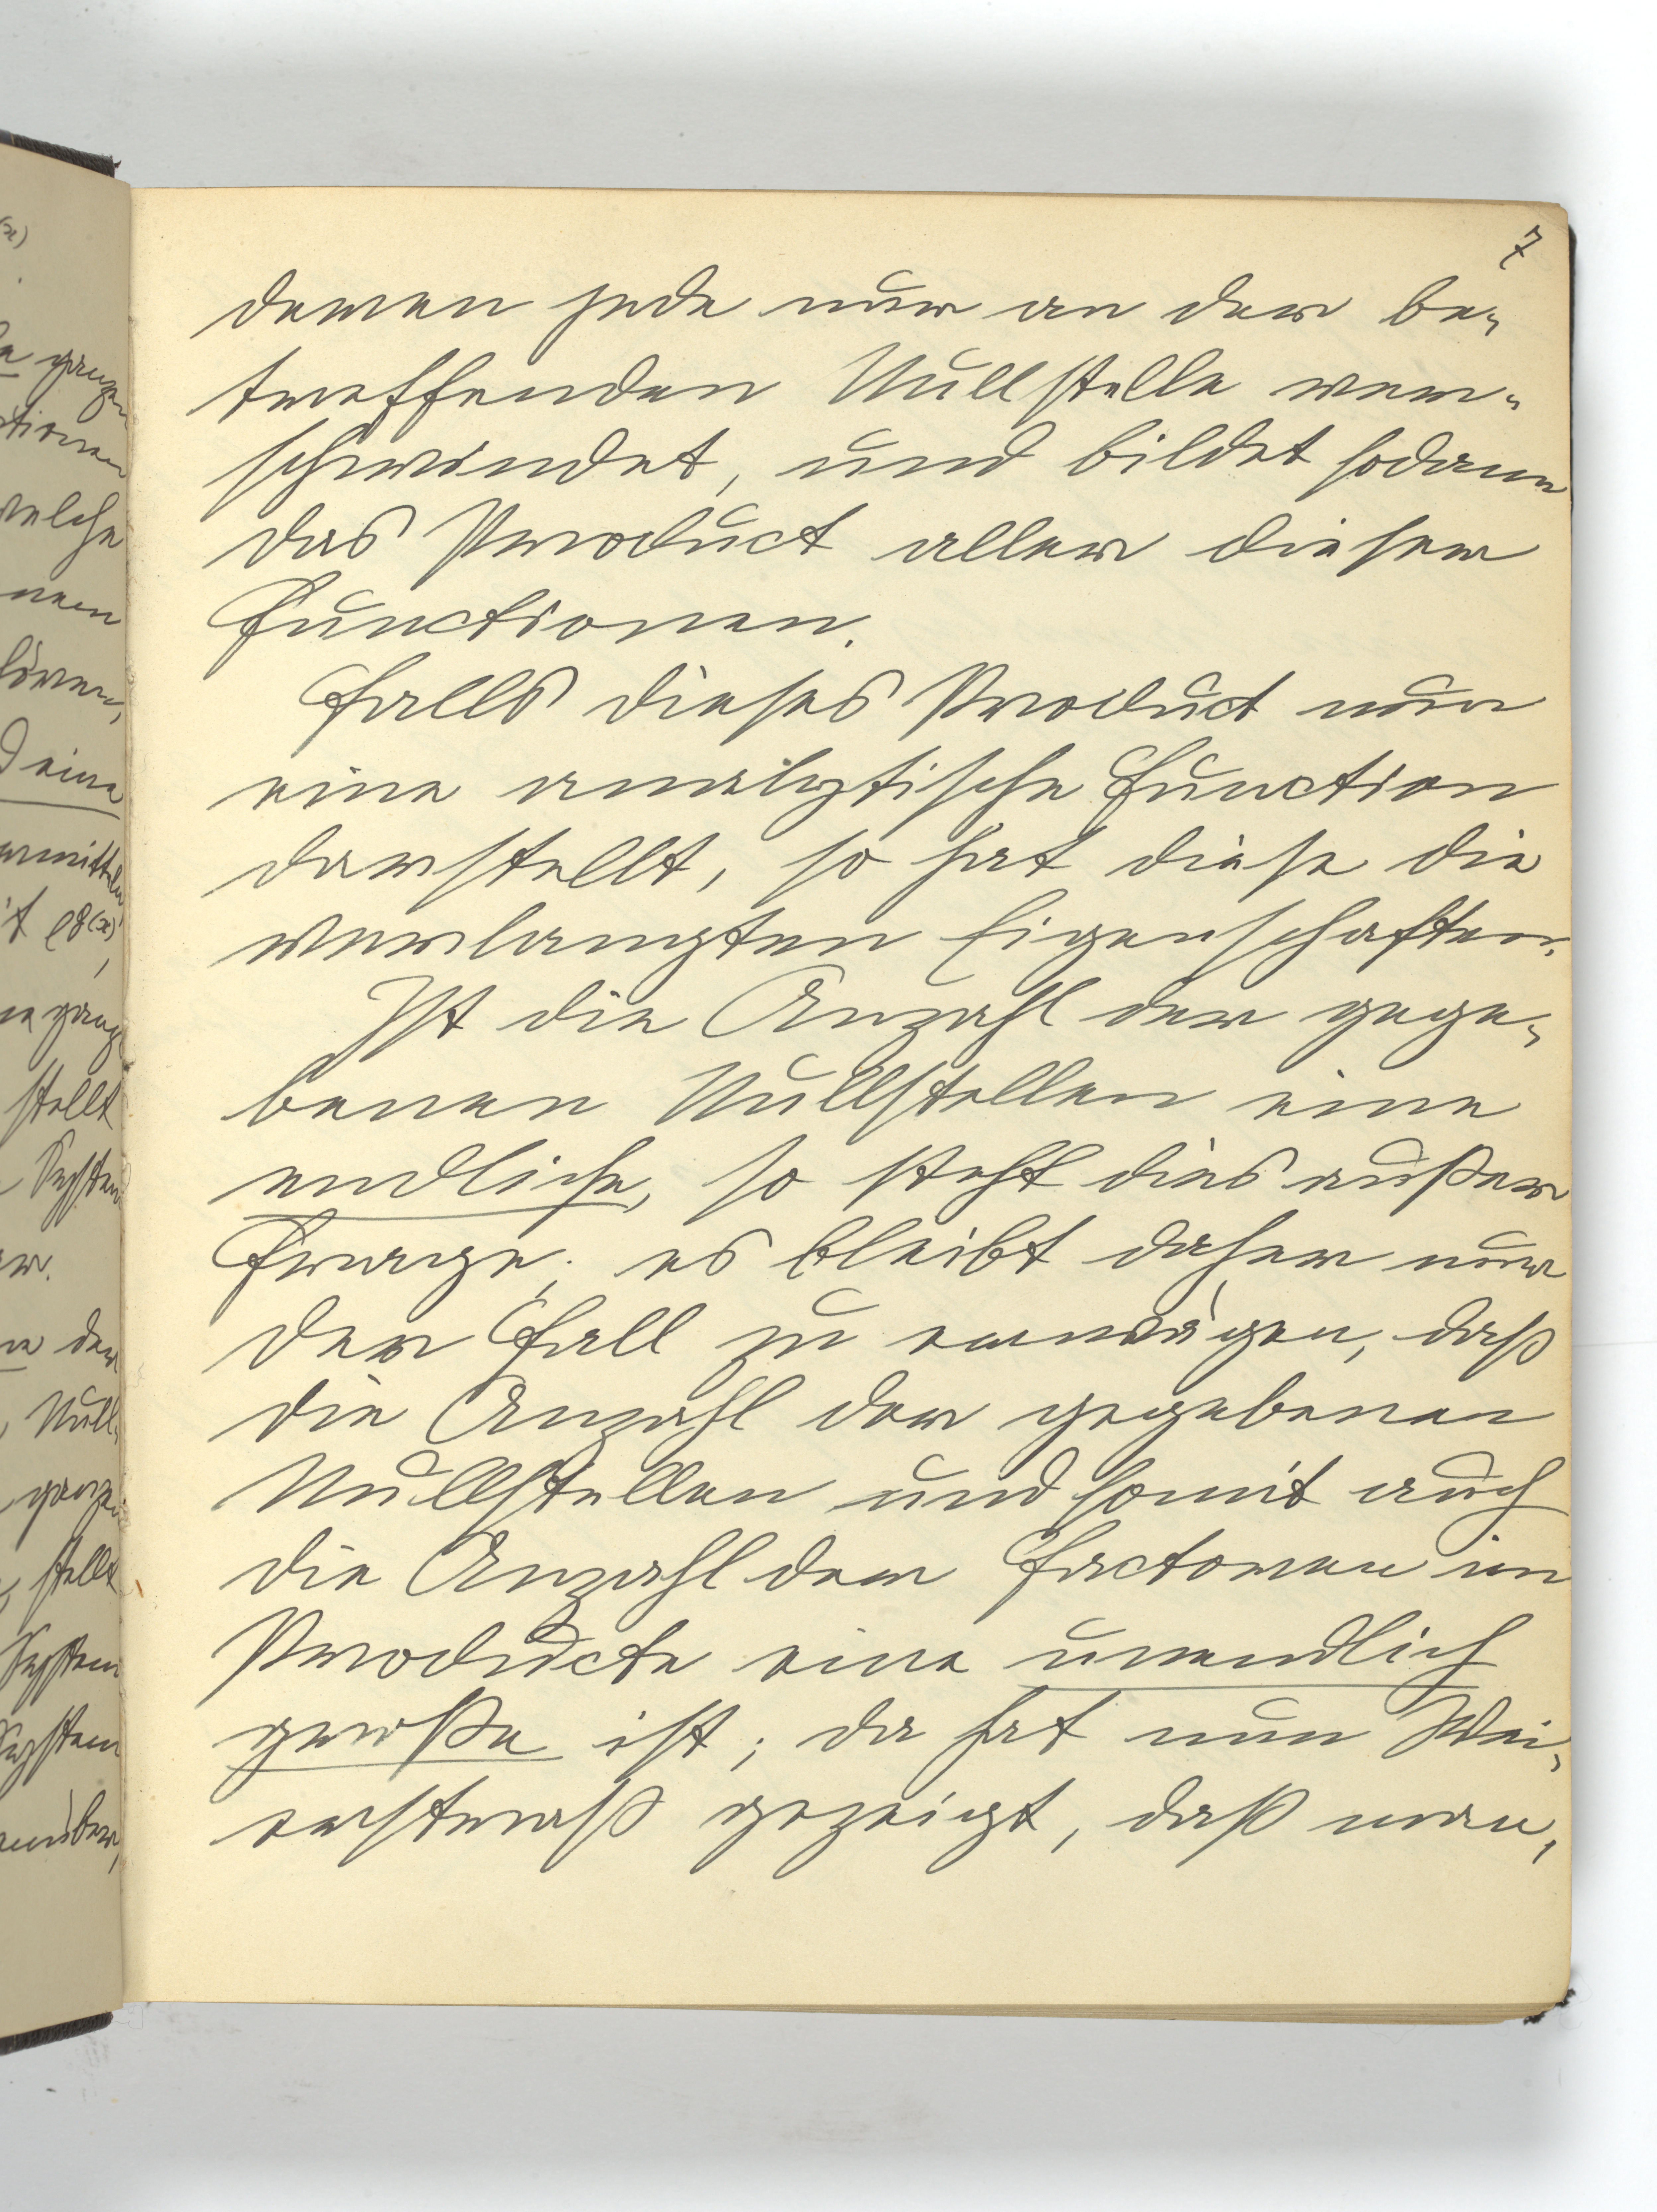 7
deren jede nur an der be-
treffenden Nullstelle ver-
schwindet, und bildet sodann
das Product aller dieser
Functionen.
Falls dieses Product nun
eine analytische Function
darstellt, so hat diese die
verlangten Eigenschaften.
Ist die Anzahl der gege-
benen Nullstellen eine
endliche, so steht dies außer
Frage; es bleibt daher nur
der Fall zu erwägen, daß
die Anzahl der gegebenen
Nullstellen und somit auch
die Anzahl der Factoren im
Producte eine unendlich
große ist; da hat nun Wei-
erstraß gezeigt, daß man,